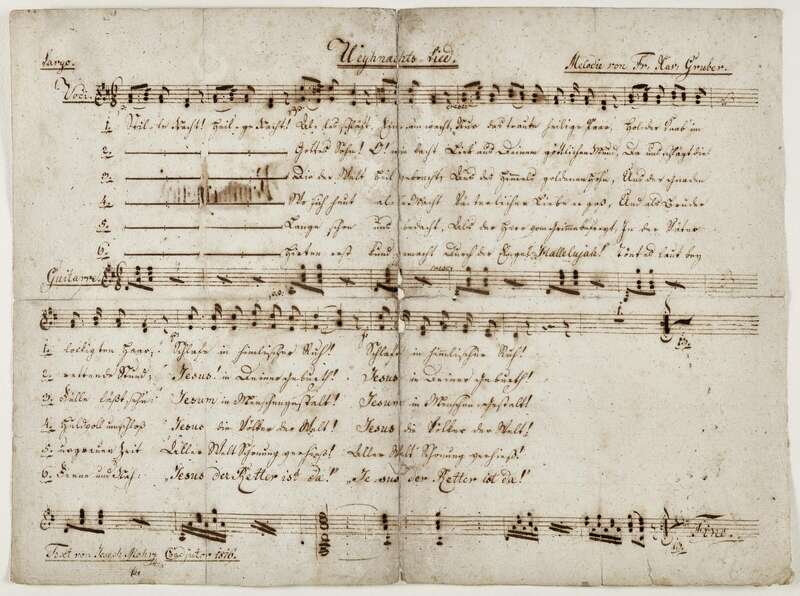 Weyhnachts-Lied.
Largo.
Melodie von Fr. Xav. Gruber.
Voci.
1. Stil-le Nacht! Heil-ge Nacht! Al-les schläft. Eynsam wacht. Nur das traute heilige Paar, Holder Knab' im
2. Gottes Sohn! O! wie lacht Lieb' aus Deinem göttlichen Mund, Da uns schlägt die
3. Die der Welt Heil gebracht, Aus des Himmels goldenen Höhn, Uns der Gnaden
4. Wo sich heut alle Macht Väterlicher Liebe ergoß, Und als Bruder
5. Lange schon uns bedacht, Als der Herr vom Grimme befreyt, In der Väter
6. Hirten erst kundgemacht Durch der Engel Hallelujah! Tönt es laut bey
Guitarre.
1. lockigten Haar; Schlafe in himlischer Ruh! Schlafe in himlischer Ruh!
2. rettende Stund; Jesus! in Deiner Geburth! Jesus in Deiner Geburth!
3. Fülle läßt sehn: Jesum in Menschengestalt! Jesum in Menschengestalt!
4. Huldvoll umschloß Jesus die Völker der Welt! Jesus die Völker der Welt!
5. urgrauer Zeit Aller Welt Schonung verhieß! Aller Welt Schonung verhieß!
6. Ferne und Nah: "Jesus der Retter ist da!" "Jesus der Retter ist da!"
Fine.
Text von Joseph Mohr Coadjutor 1816.